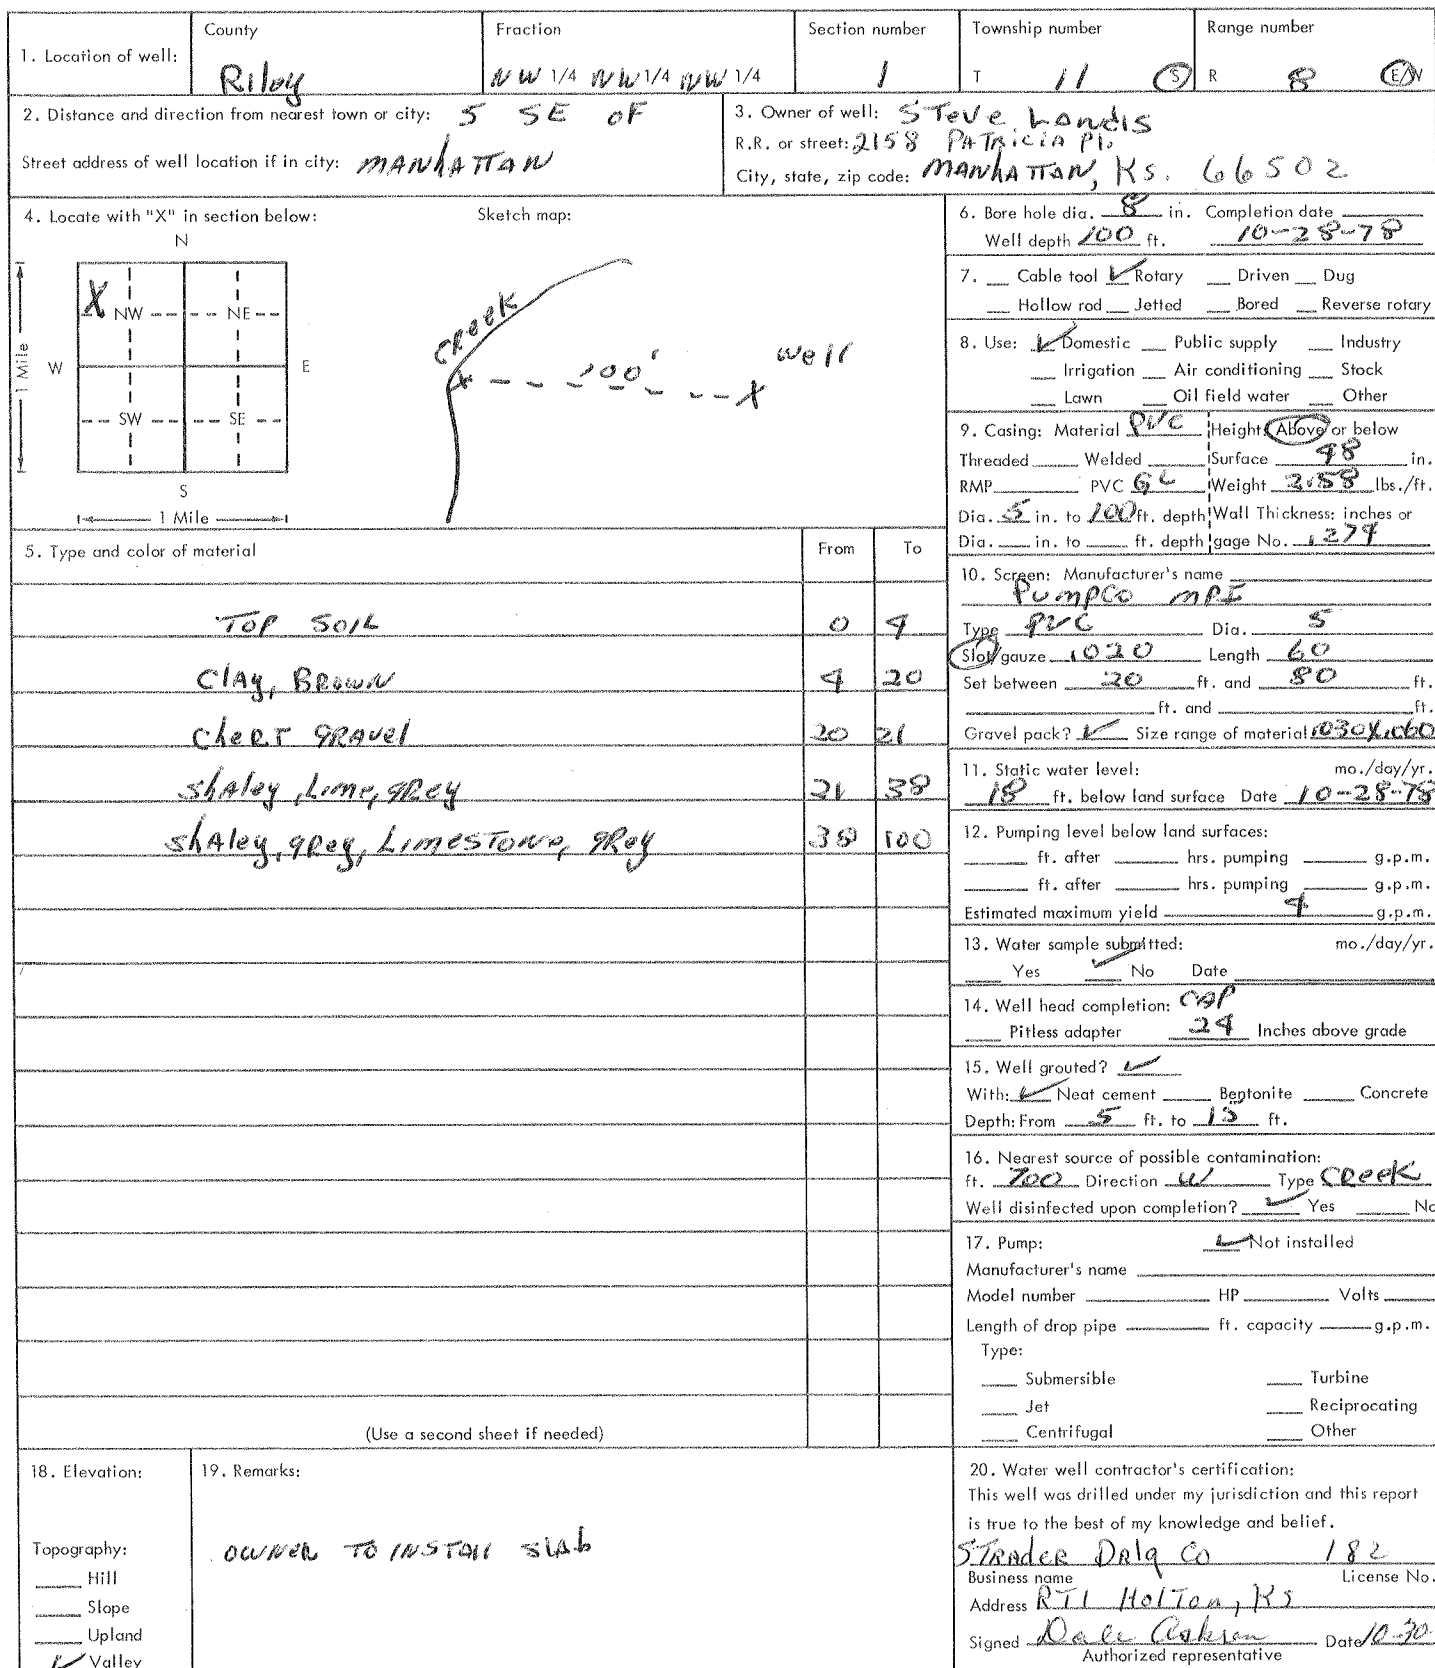 County Fraction Section number Township number Range number
1. Location of well: Riley NW 1/4 NW 1/4 NW 1/4 1 T 11 S R 8 E/W
2. Distance and direction from nearest town or city: 5 SE OF
Street address of well location if in city: MANHATTAN
3. Owner of well: STeve Landis
R.R. or street: 2158 PATRICIA Pl.
City, state, zip code: MANHATTAN, KS. 66502
4. Locate with "X" in section below: Sketch map:
N
X NW NE
W E
SW SE
S
1 Mile
1 Mile
CReeK
100'
well
X X
5. Type and color of material From To
TOP SOIL 0 4
ClAy, BROWN 4 20
CheRT gRAvel 20 21
shAley, Lime, gRey 21 38
shAley, gRey, LIMESTONe, gRey 38 100
(Use a second sheet if needed)
6. Bore hole dia. 8 in. Completion date
Well depth 100 ft. 10-28-78
7. Cable tool ✓ Rotary Driven Dug
Hollow rod Jetted Bored Reverse rotary
8. Use: ✓ Domestic Public supply Industry
Irrigation Air conditioning Stock
Lawn Oil field water Other
9. Casing: Material PVC Height: Above or below
Threaded Welded Surface 48 in.
RMP PVC GL Weight lbs./ft.
Dia. 5 in. to 100 ft. depth Wall Thickness: inches or
Dia. in. to ft. depth gage No. .274
10. Screen: Manufacturer's name
PUMPCO MPI
Type PVC Dia. 5
Slot/gauze .020 Length 60
Set between 20 ft. and 80 ft.
ft. and ft.
Gravel pack? ✓ Size range of material .030X.060
11. Static water level: mo./day/yr.
18 ft. below land surface Date 10-28-78
12. Pumping level below land surfaces:
ft. after hrs. pumping g.p.m.
ft. after hrs. pumping g.p.m.
Estimated maximum yield 4 g.p.m.
13. Water sample submitted: mo./day/yr.
Yes ✓ No Date
14. Well head completion: CAP
Pitless adapter 24 Inches above grade
15. Well grouted? ✓
With: ✓ Neat cement Bentonite Concrete
Depth: From 5 ft. to 15 ft.
16. Nearest source of possible contamination:
ft. Direction W Type CReeK
Well disinfected upon completion? ✓ Yes No
17. Pump: ✓ Not installed
Manufacturer's name
Model number HP Volts
Length of drop pipe ft. capacity g.p.m.
Type:
Submersible Turbine
Jet Reciprocating
Centrifugal Other
18. Elevation:
Topography:
Hill
Slope
Upland
✓ Valley
19. Remarks:
OWNER TO INSTAll slAb
20. Water well contractor's certification:
This well was drilled under my jurisdiction and this report
is true to the best of my knowledge and belief.
STRADER DRlg CO 182
Business name License No.
Address RT1 HolTon, KS
Signed Dale Date 10-30
Authorized representative